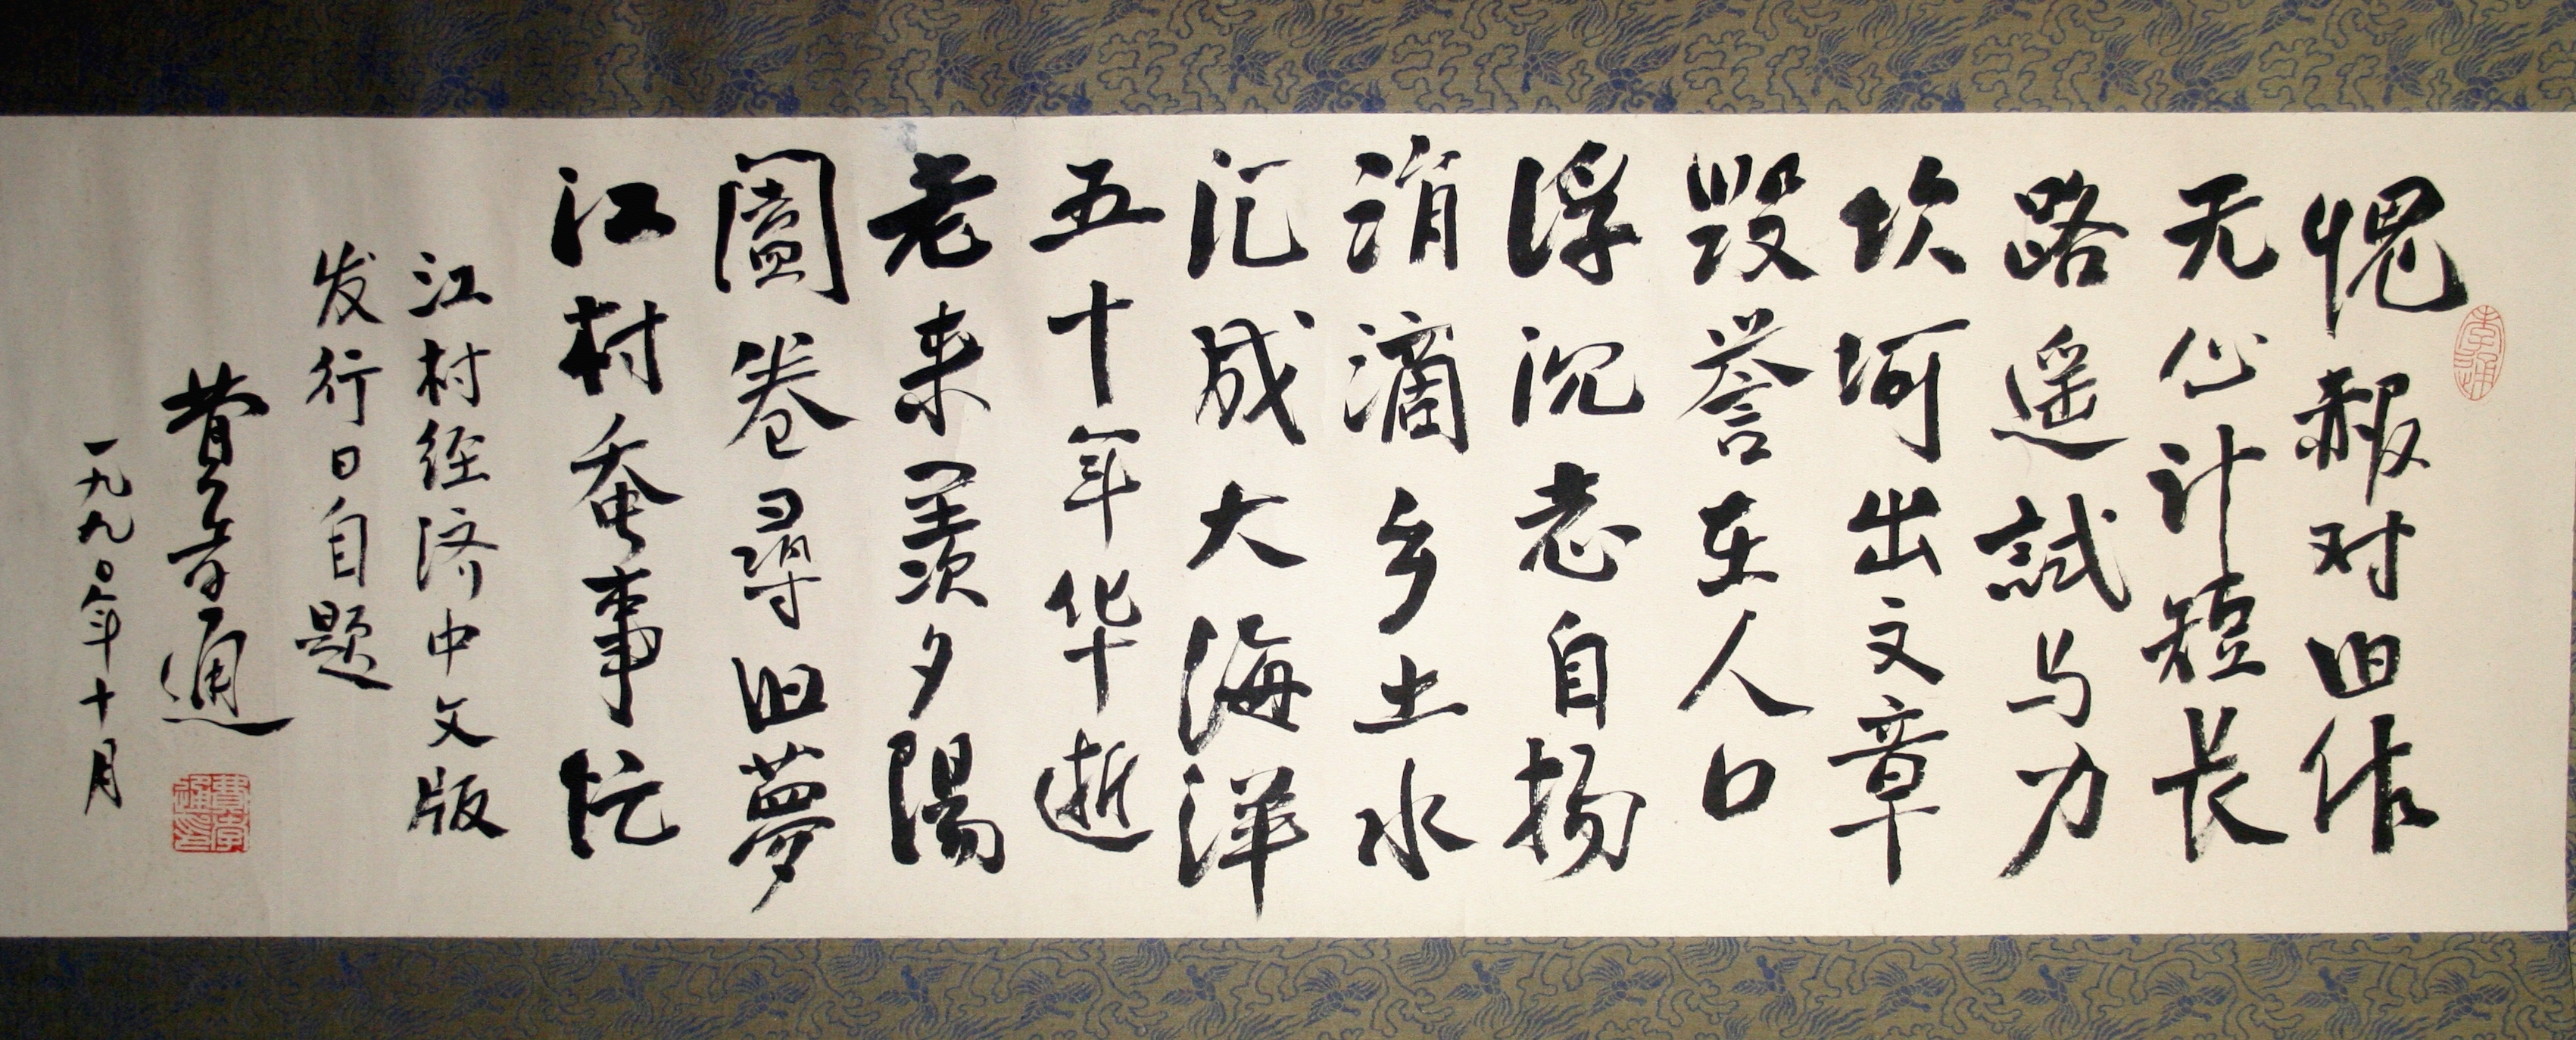 孝通
愧赧对旧作
无心计短长
路遥試马力
坎坷出文章
毁誉在人口
浮沉志自扬
涓滴乡土水
汇成大海洋
五十年华逝
老来羡夕陽
阖卷尋旧夢
江村蚕事忙
江村经济中文版
发行日自题
费孝通
費孝通印
一九九〇年十月